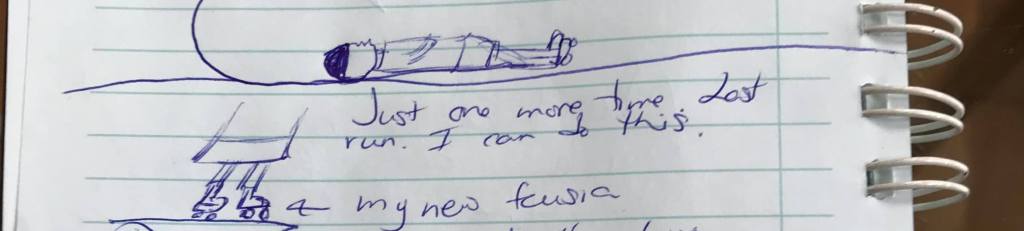 Just one more time. Last
run. I can do this.
← my new fcusia